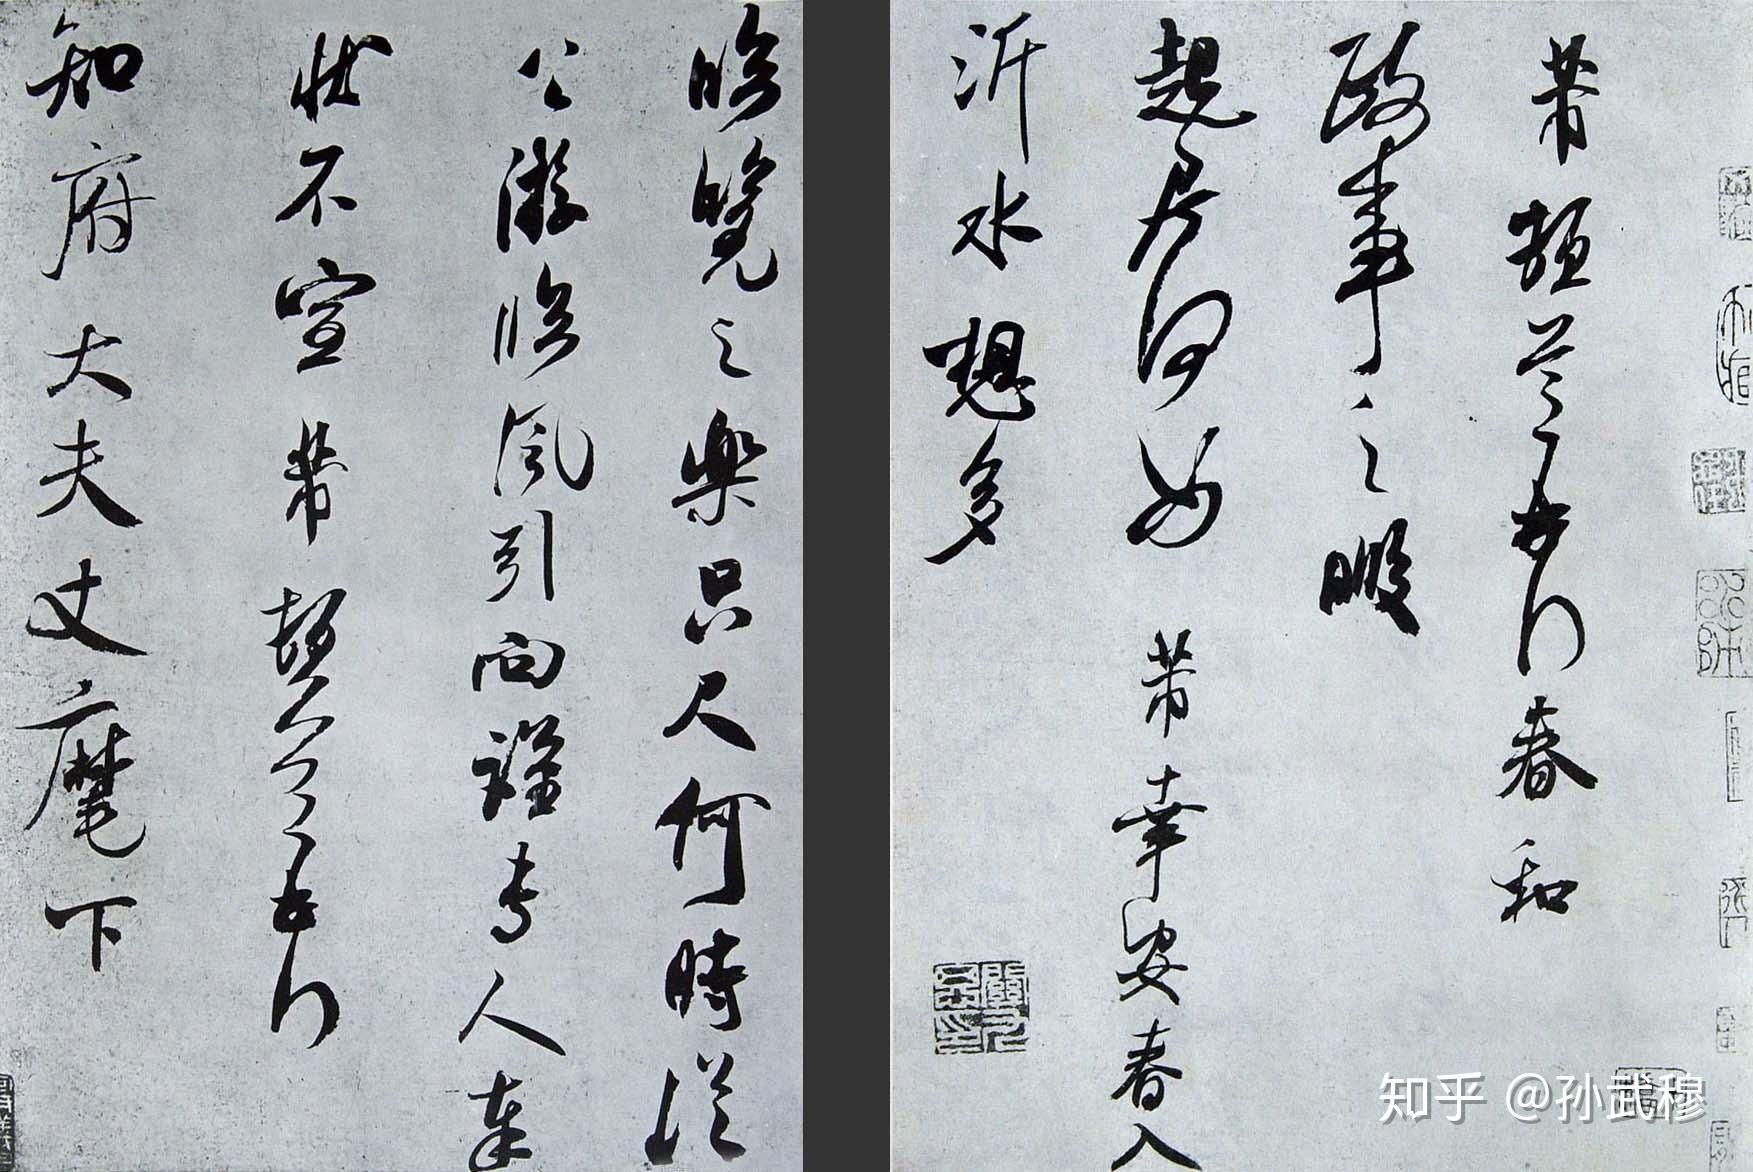 芾頓首再拜春和
政事之暇
起居何如芾幸安春入
沂水想多
臨覽之樂只尺何時從
公游臨風引向謹專人奉
狀不宣芾頓首再拜
知府大夫丈麾下
知乎 @孙武穆